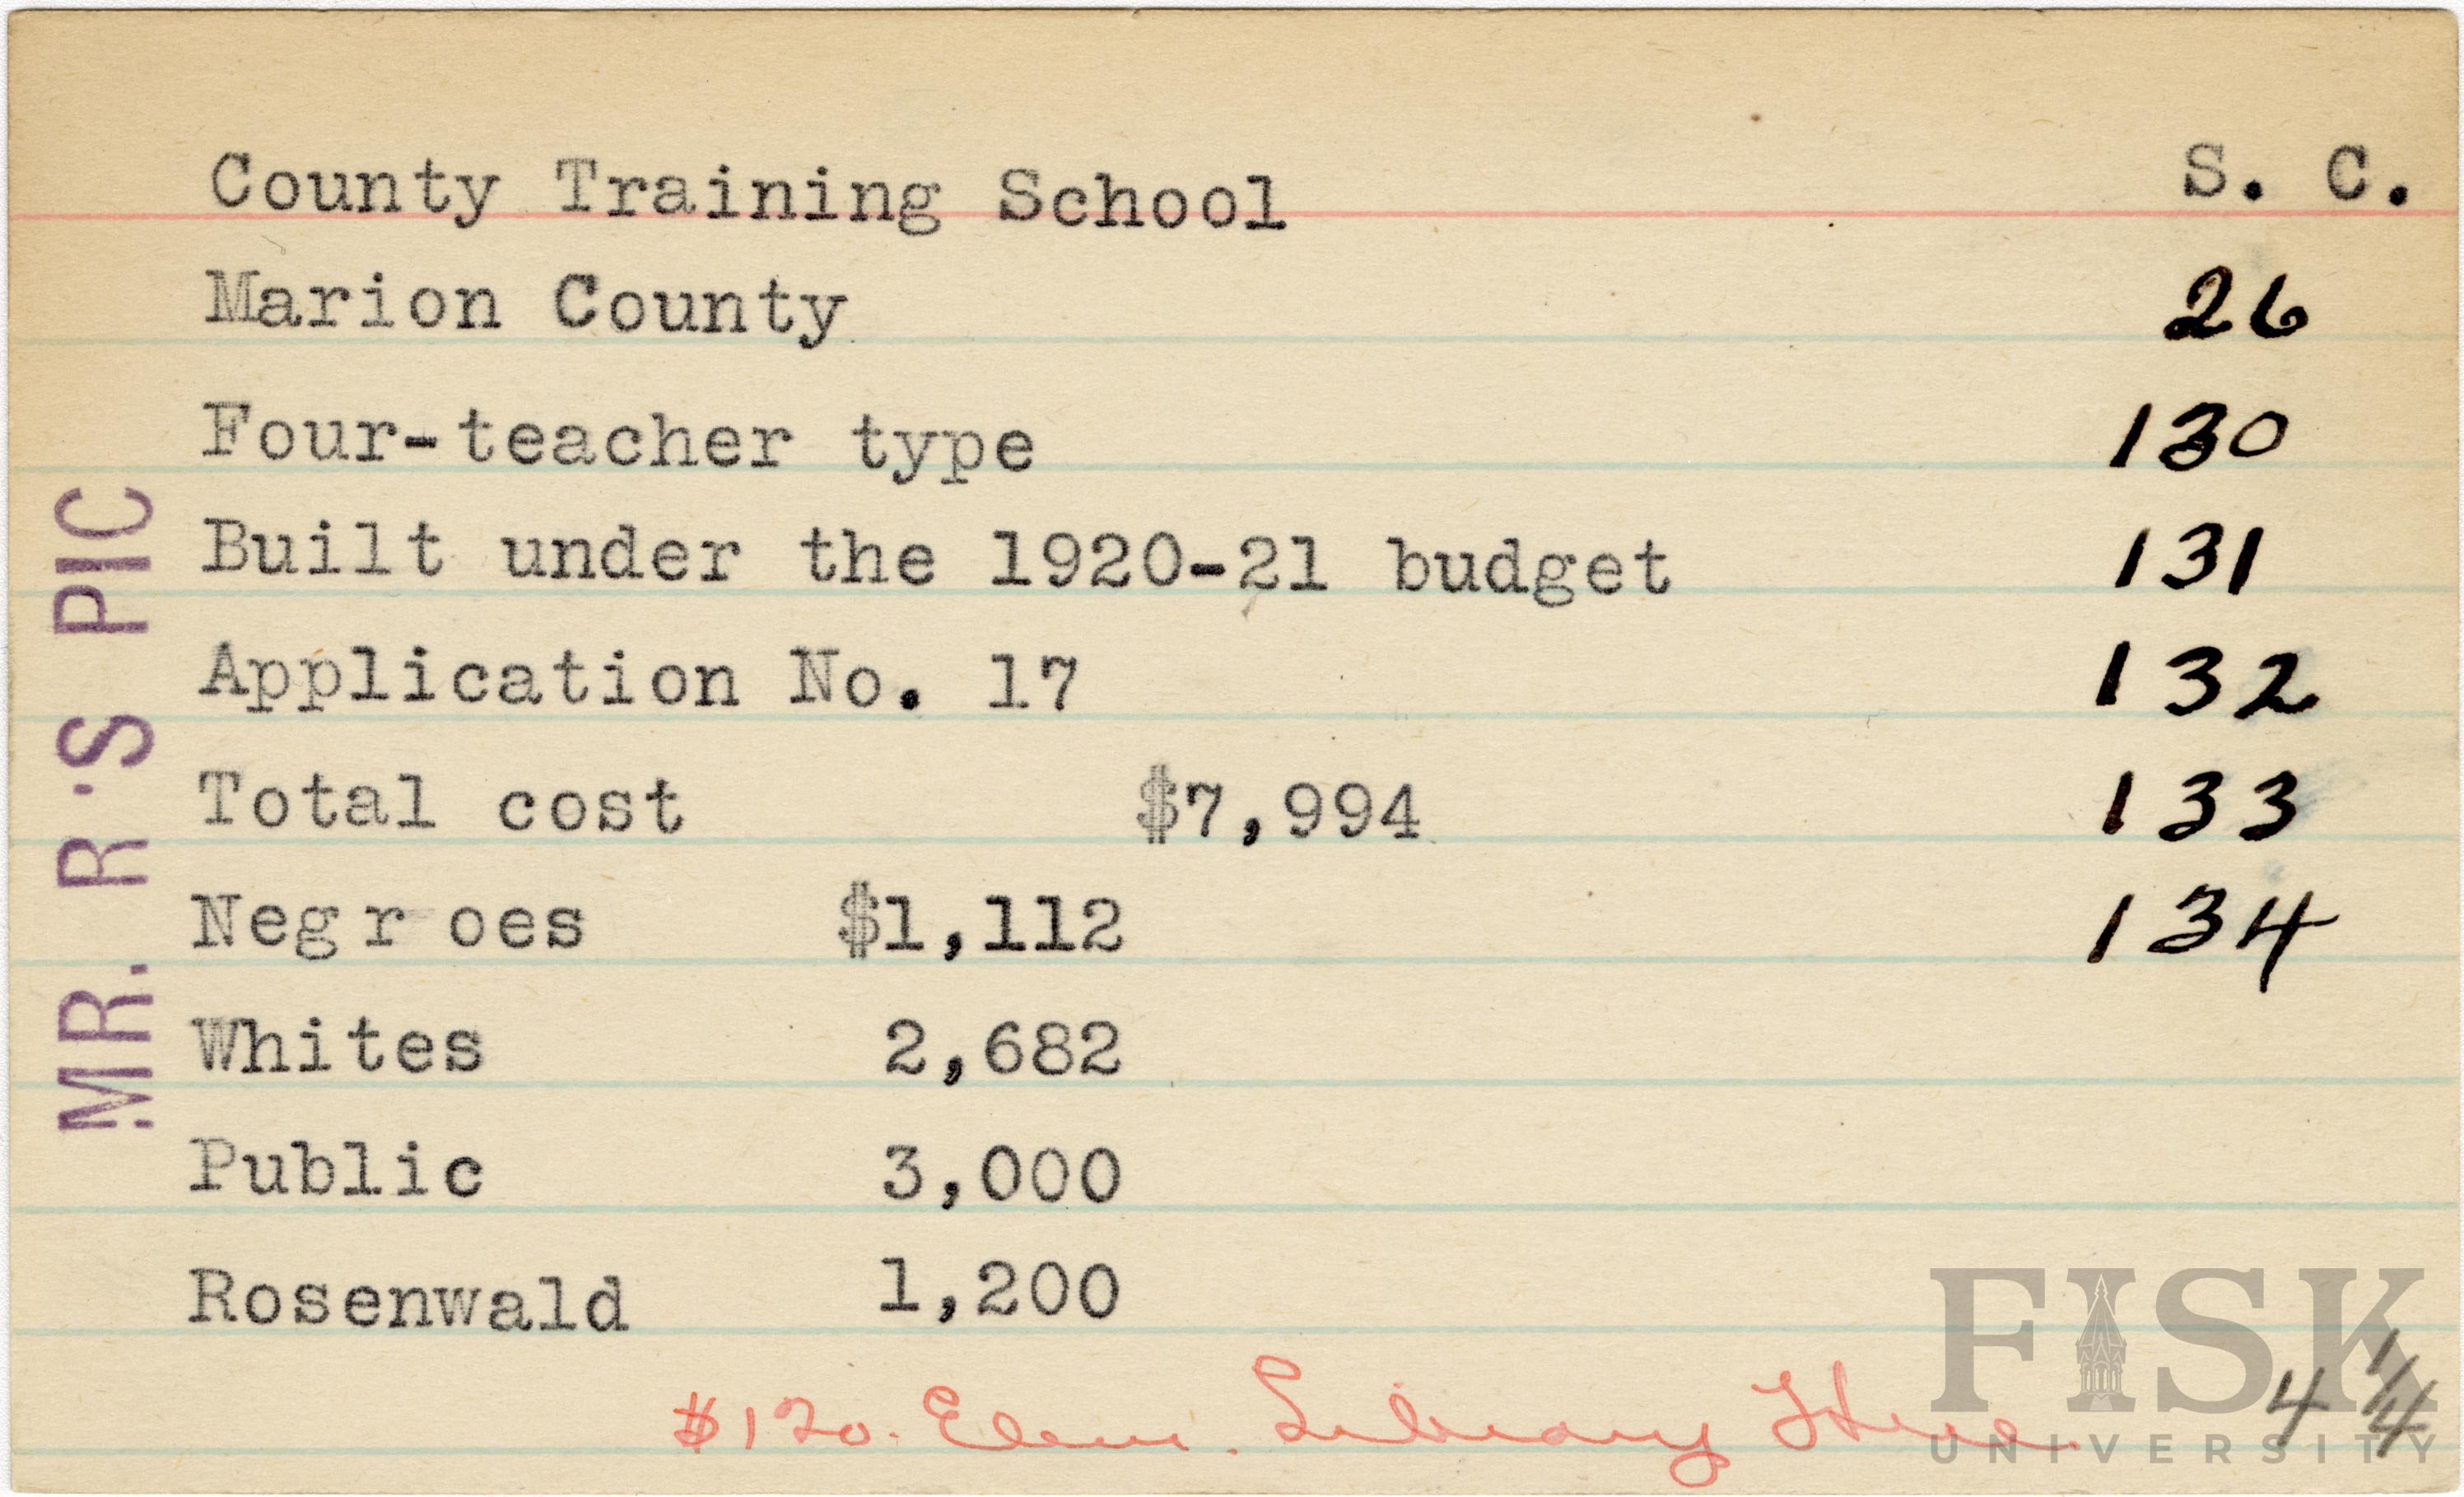 County Training School S. C.
Marion County 26
Four-teacher type 130
Built under the 1920-21 budget 131
Application No. 17 132
Total cost $7,994 133
Negroes $1,112 134
Whites 2,682
Public 3,000
Rosenwald 1,200
$120. Elem. Library
4 1/4
MR. R'S PIC
FISK
UNIVERSITY